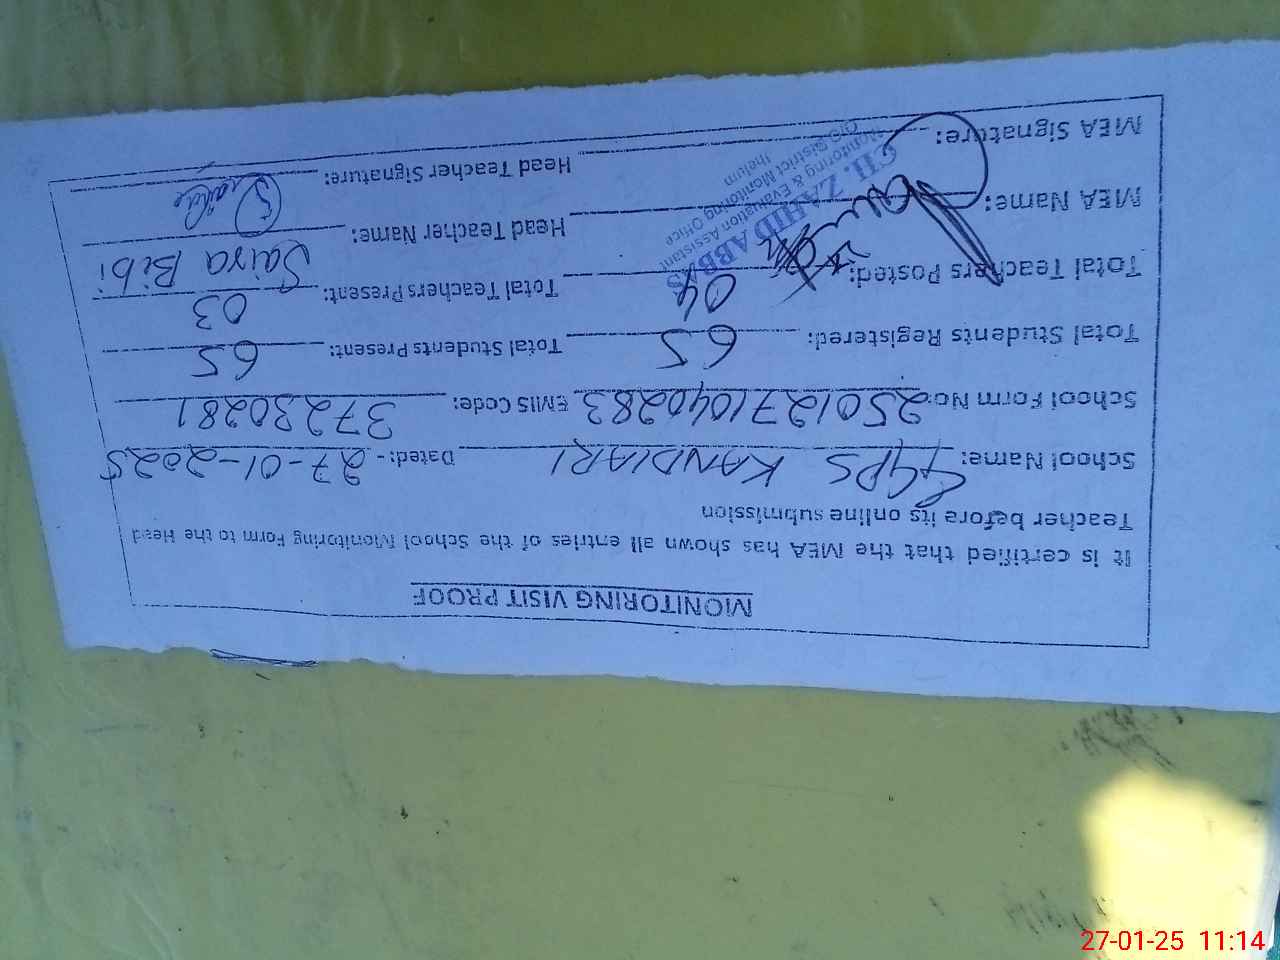 MONITORING VISIT PROOF
It is certified that the MEA has shown all entries of the School Monitoring Form to the Head
Teacher before its online submission
School Name: GGPS KANDIARI Dated:- 27-01-2025
School Form No: 2501271040283 EMIS Code: 37230281
Total Students Registered: 65 Total Students Present: 65
Total Teachers Posted: 04 Total Teachers Present: 03
MEA Name: Head Teacher Name: Saira Bibi
MEA Signature: Head Teacher Signature:
CH. ZAHID ABBAS
Monitoring & Evaluation Assistant
O/O District Monitoring Office
Jhelum
27-01-25 11:14